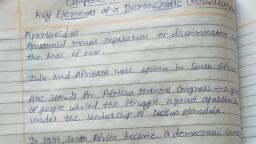 Key Elements of a Democratic Government
Apartheid is
Apartheid means separation or discrimination
the basis of race.
Zulu and Afrikans were spoken in South Africa
ANC stands for African National Congress
of people who led the struggle against apartheid
under the leadership of Nelson Mandela.
In 1994, South Africa became a democratic